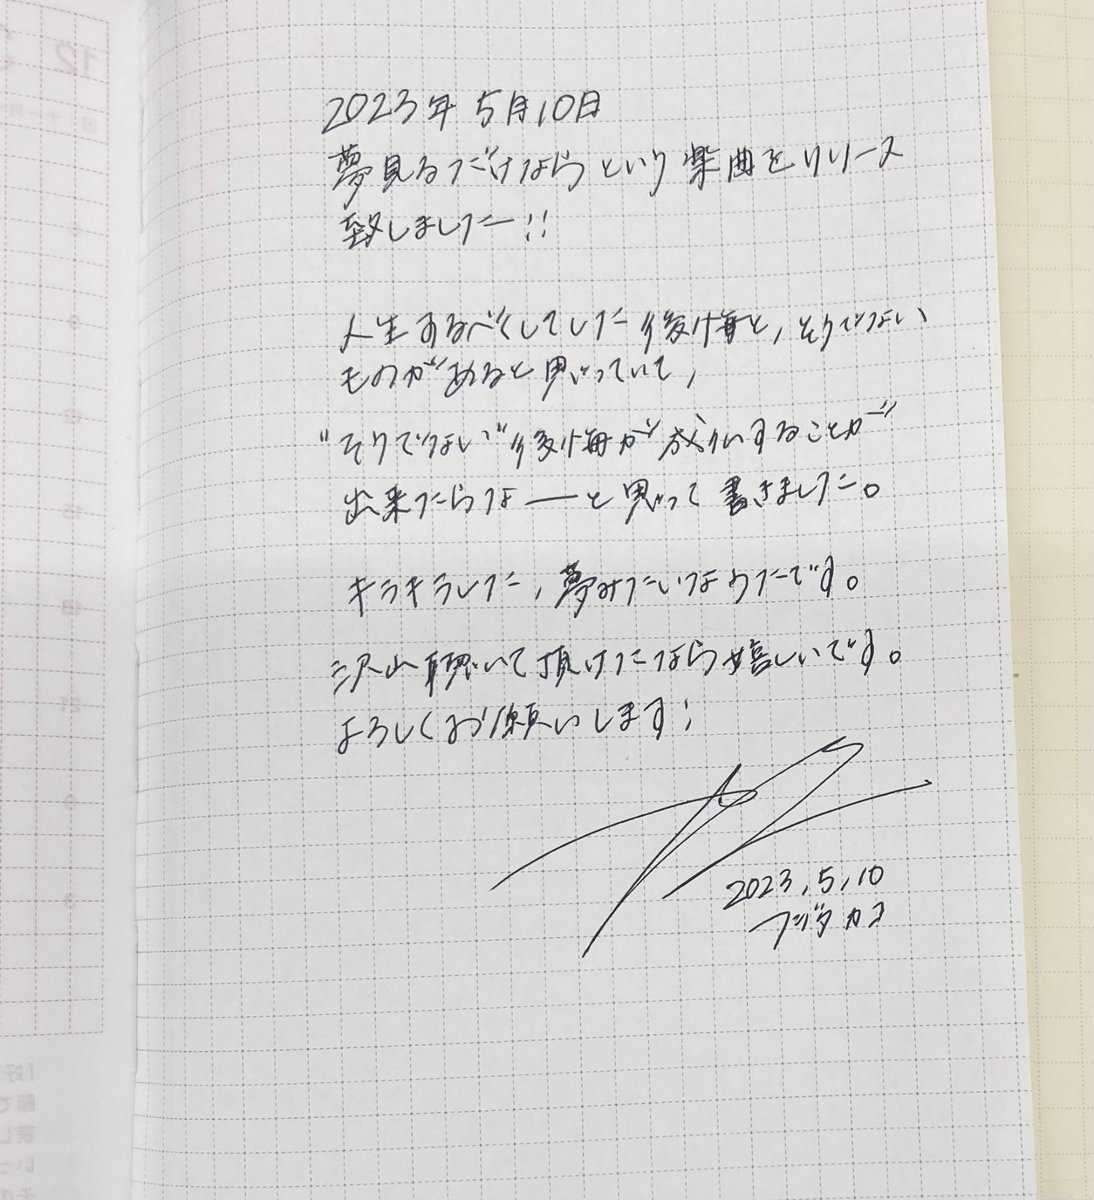 2023年5月10日
夢見るだけならという楽曲をリリース
致しましたー!!
人生するべくしてした後悔と、そうでない
ものがあると思っていて、
"そうでない"後悔が成仏することが
出来たらなーと思って書きました。
キラキラした、夢みたいなうたです。
沢山聴いて頂けたなら嬉しいです。
よろしくお願いします!
2023.5.10
フジタカコ
12